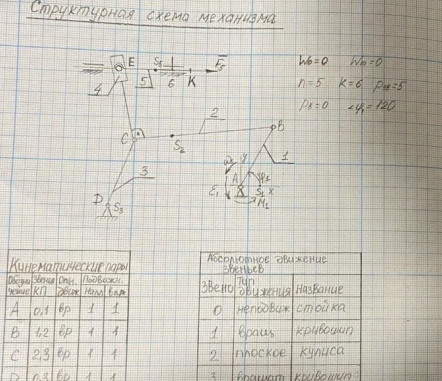 Структурная схема механизма
E S₅ F₅
4 5 6 K
W₀=0 Wп=0
n=5 K=6 p₁=5
pв=0 ∠φ₁=120
2
B
C S₂
1
3
ω₁ y
A φ₁
ε₁ S₁ x
M₁
D S₃
Кинематические пары
Обозначение Звенья КП Отн. движ Подвижн.
A 0,1 вр 1 1
B 1,2 вр 1 1
C 2,3 вр 1 1
D 0,3 вр 1 1
Абсолютное движение звеньев
Звено Тип движения Название
0 неподвиж стойка
1 вращ кривошип
2 плоское кулиса
3 вращат кривошип